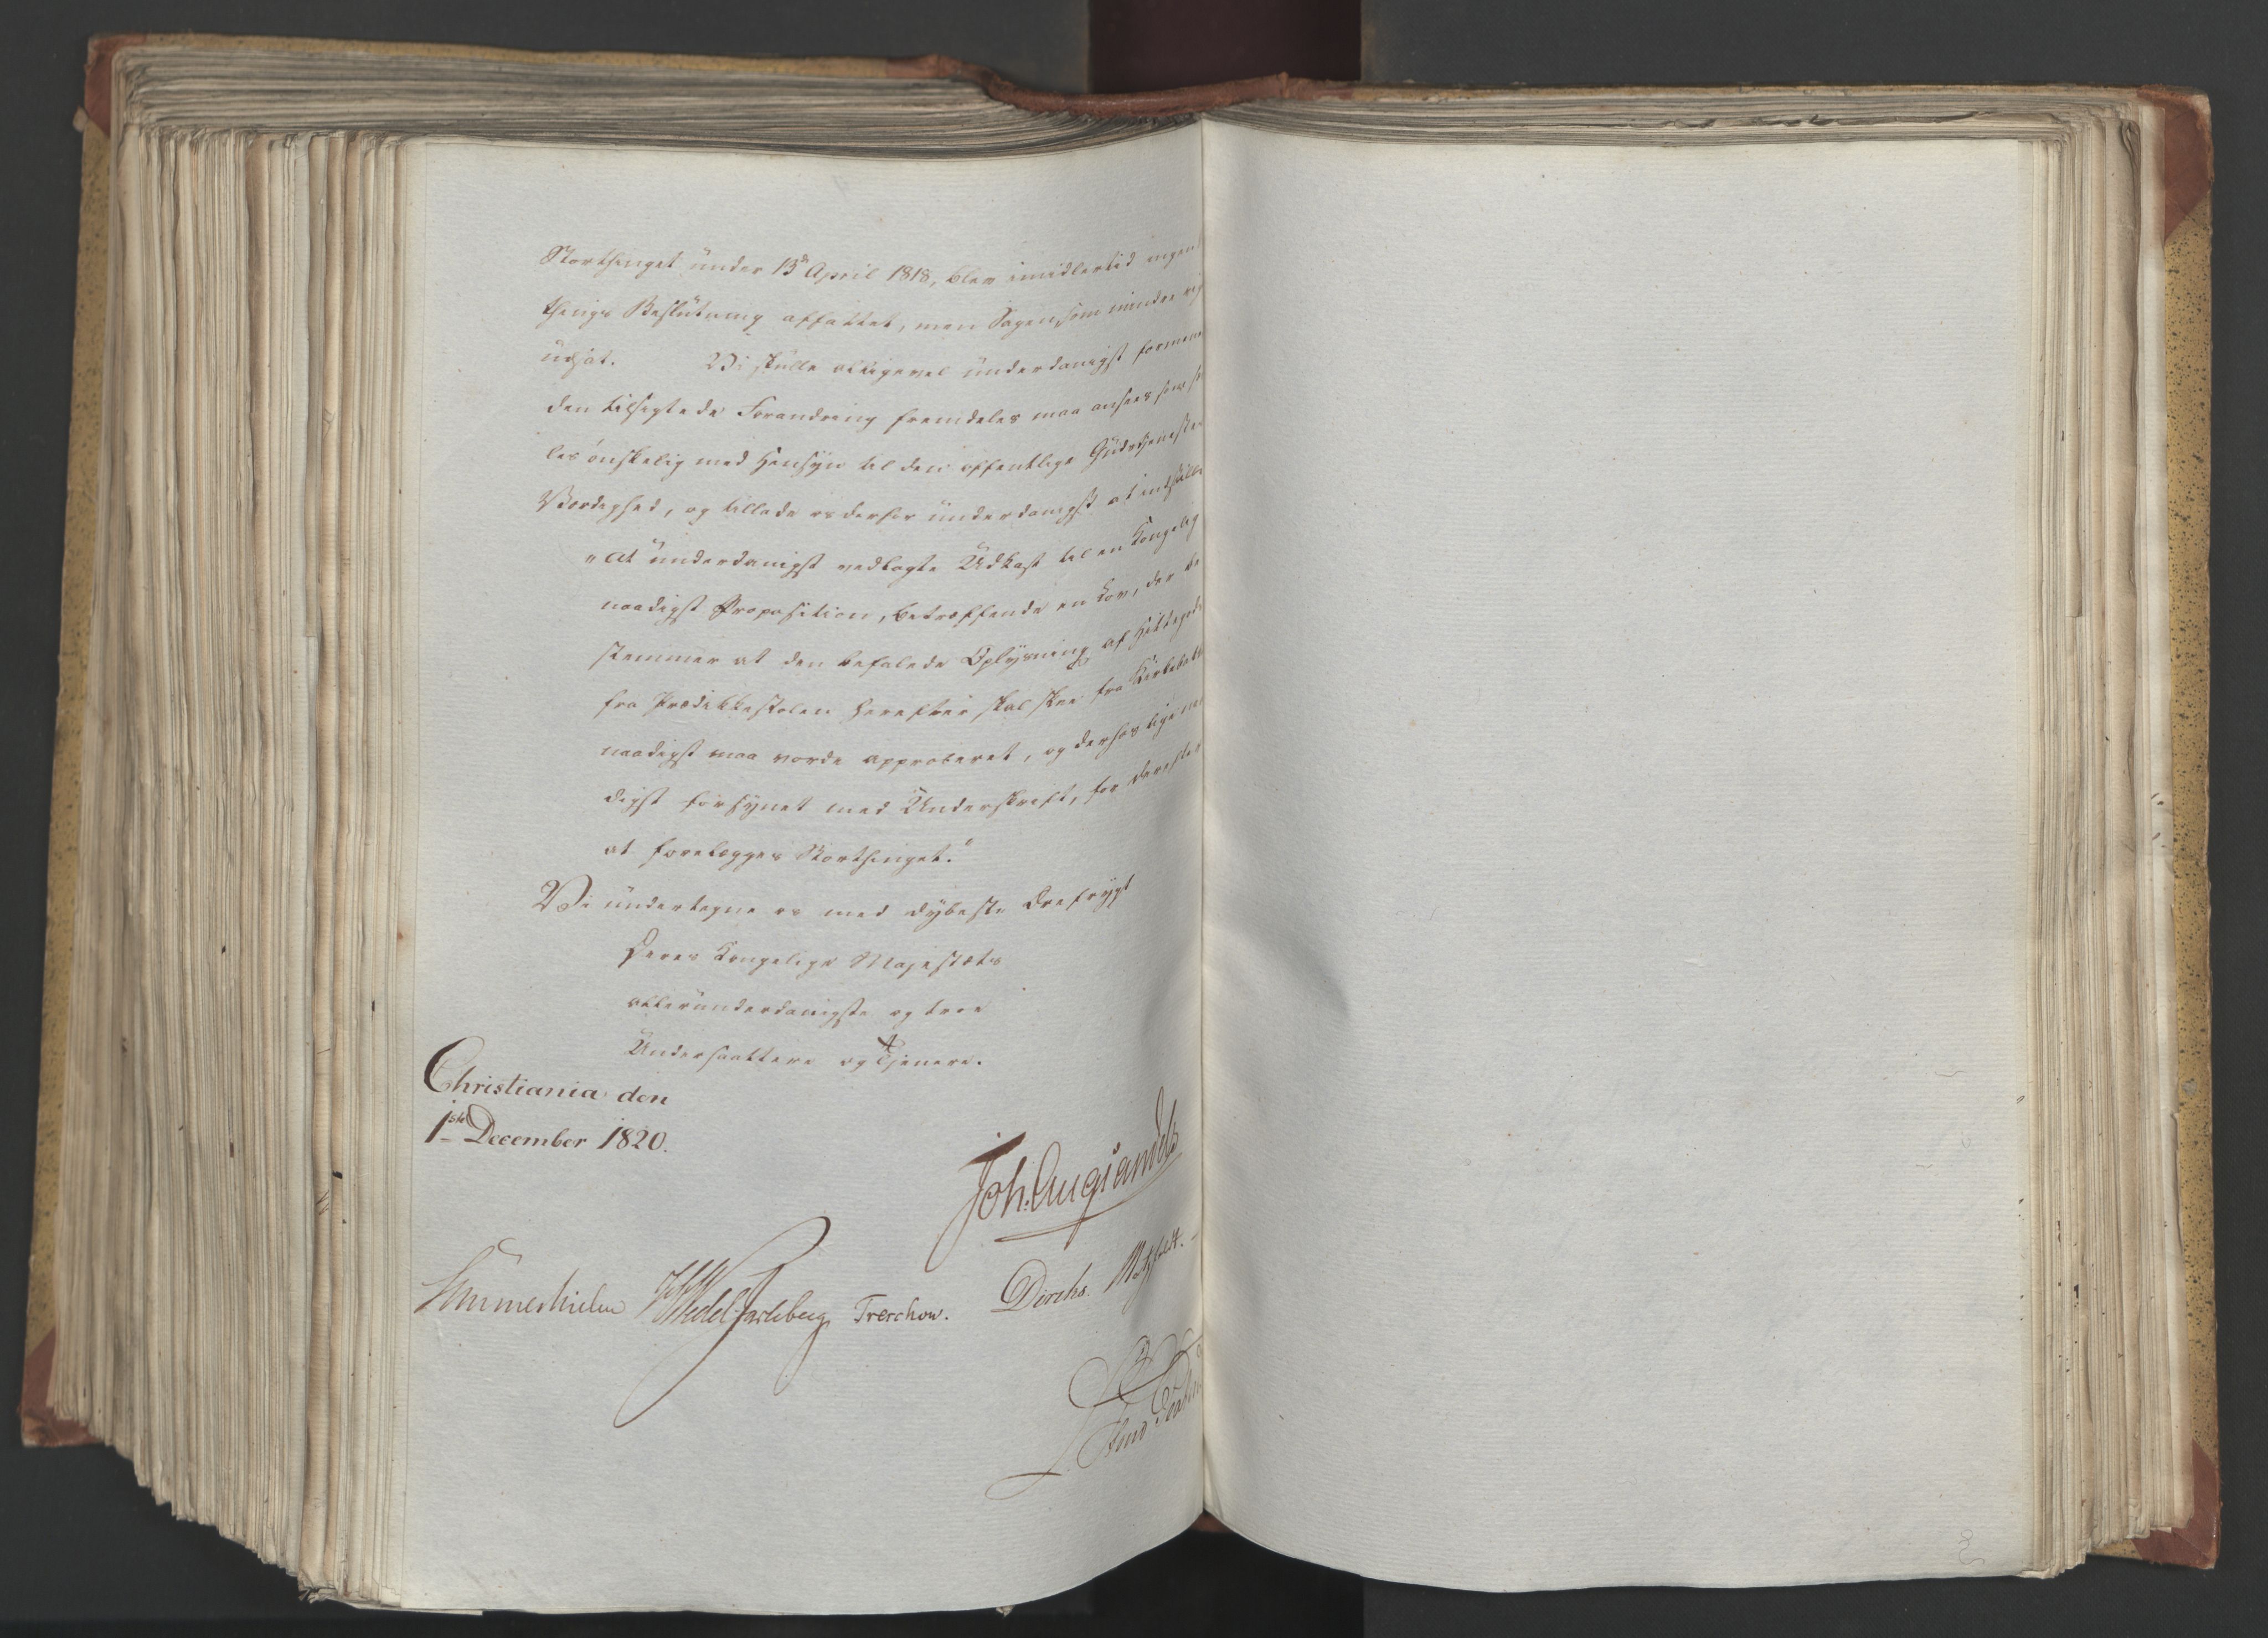 Storthinget under 13de April 1818, blev imidlertid ingen
things Beslutning affattet, men Sagen, som mindre
udsat. Vi skulle alligevel underdanigst formene
den tilsigtede Forandring fremdeles maa ansees som
les ønskelig med Hensyn til den offentlige Gudstjenestes
Værdighed, og tillade os derfor underdanigst at indstille
"at underdanigst vedlagte Udkast til en Kongelig
naadigst Proposition, betræffende en Lov, der be
stemmer at den befalede Oplysning af Hittegods
fra Prædikkestolen herefter skal skee fra Kirkebakken
naadigst maa vorde approberet, og derhos ligenaa
digst forsynet med Underskrift, for derefter
at forelægges Storthinget."
Vi undertegne os med dybeste Ærefrygt
Deres Kongelige Majestæts
allerunderdanigste og troe
Undersaattere og Tjenere.
Christiania den
1ste December 1820.
Joh. Aug. Sandels
Sommerhielm Wedel Jarlsberg Treschow. Diriks. Motzfeldt.